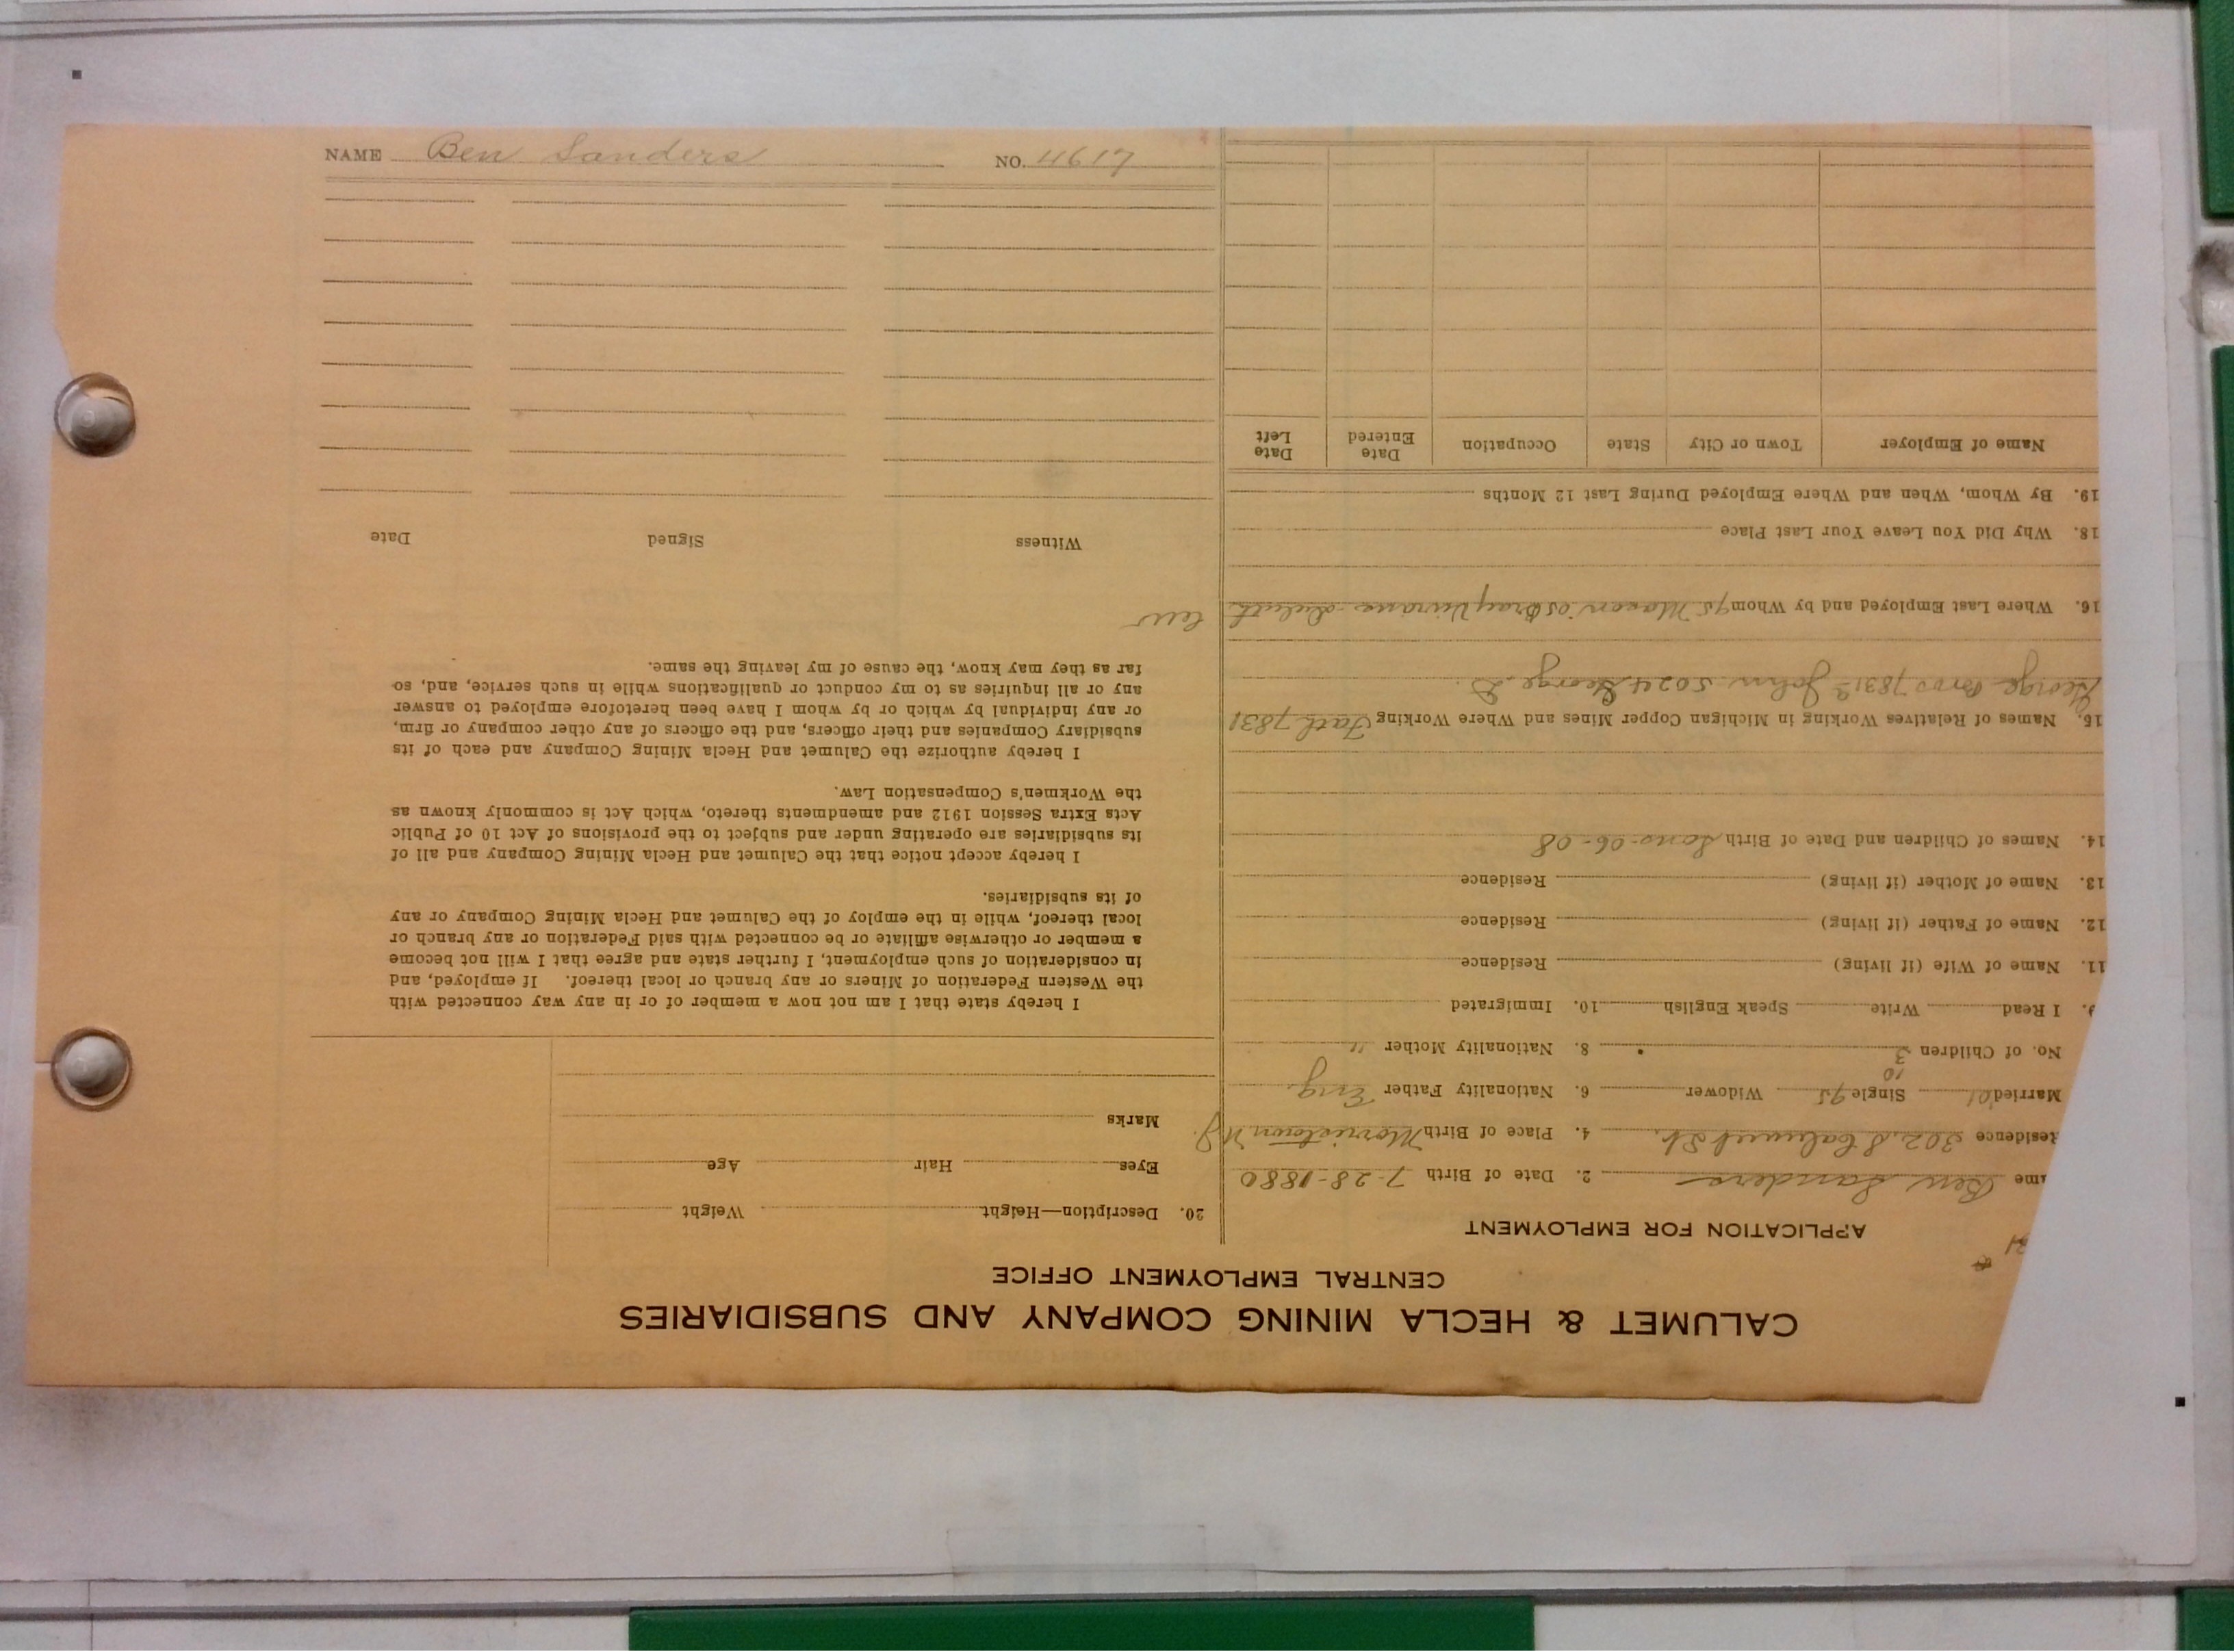 CALUMET & HECLA MINING COMPANY AND SUBSIDIARIES
CENTRAL EMPLOYMENT OFFICE
APPLICATION FOR EMPLOYMENT
ame Ben Sanders 2. Date of Birth 7-28-1880
Residence 302.8 Calumet St. 4. Place of Birth Morristown N.J.
Married 01 Single 95 Widower 6. Nationality Father Eng.
10
No. of Children 3 8. Nationality Mother "
9. I Read Write Speak English 10. Immigrated
11. Name of Wife (if living) Residence
12. Name of Father (if living) Residence
13. Name of Mother (if living) Residence
14. Names of Children and Date of Birth Sons-06-08
15. Names of Relatives Working in Michigan Copper Mines and Where Working Fath 7831
George Bros 7831 John 5024 George D.
16. Where Last Employed and by Whom 95 Duluth
18. Why Did You Leave Your Last Place
19. By Whom, When and Where Employed During Last 12 Months
Name of Employer Town or City State Occupation Date Entered Date Left
20. Description—Height Weight
Eyes Hair Age
Marks
I hereby state that I am not now a member of or in any way connected with
the Western Federation of Miners or any branch or local thereof. If employed, and
in consideration of such employment, I further state and agree that I will not become
a member or otherwise affiliate or be connected with said Federation or any branch or
local thereof, while in the employ of the Calumet and Hecla Mining Company or any
of its subsidiaries.
I hereby accept notice that the Calumet and Hecla Mining Company and all of
its subsidiaries are operating under and subject to the provisions of Act 10 of Public
Acts Extra Session 1912 and amendments thereto, which Act is commonly known as
the Workmen's Compensation Law.
I hereby authorize the Calumet and Hecla Mining Company and each of its
subsidiary Companies and their officers, and the officers of any other company or firm,
or any individual by which or by whom I have been heretofore employed to answer
any or all inquiries as to my conduct or qualifications while in such service, and, so
far as they may know, the cause of my leaving the same.
Witness Signed Date
NAME Ben Sanders NO. 4617